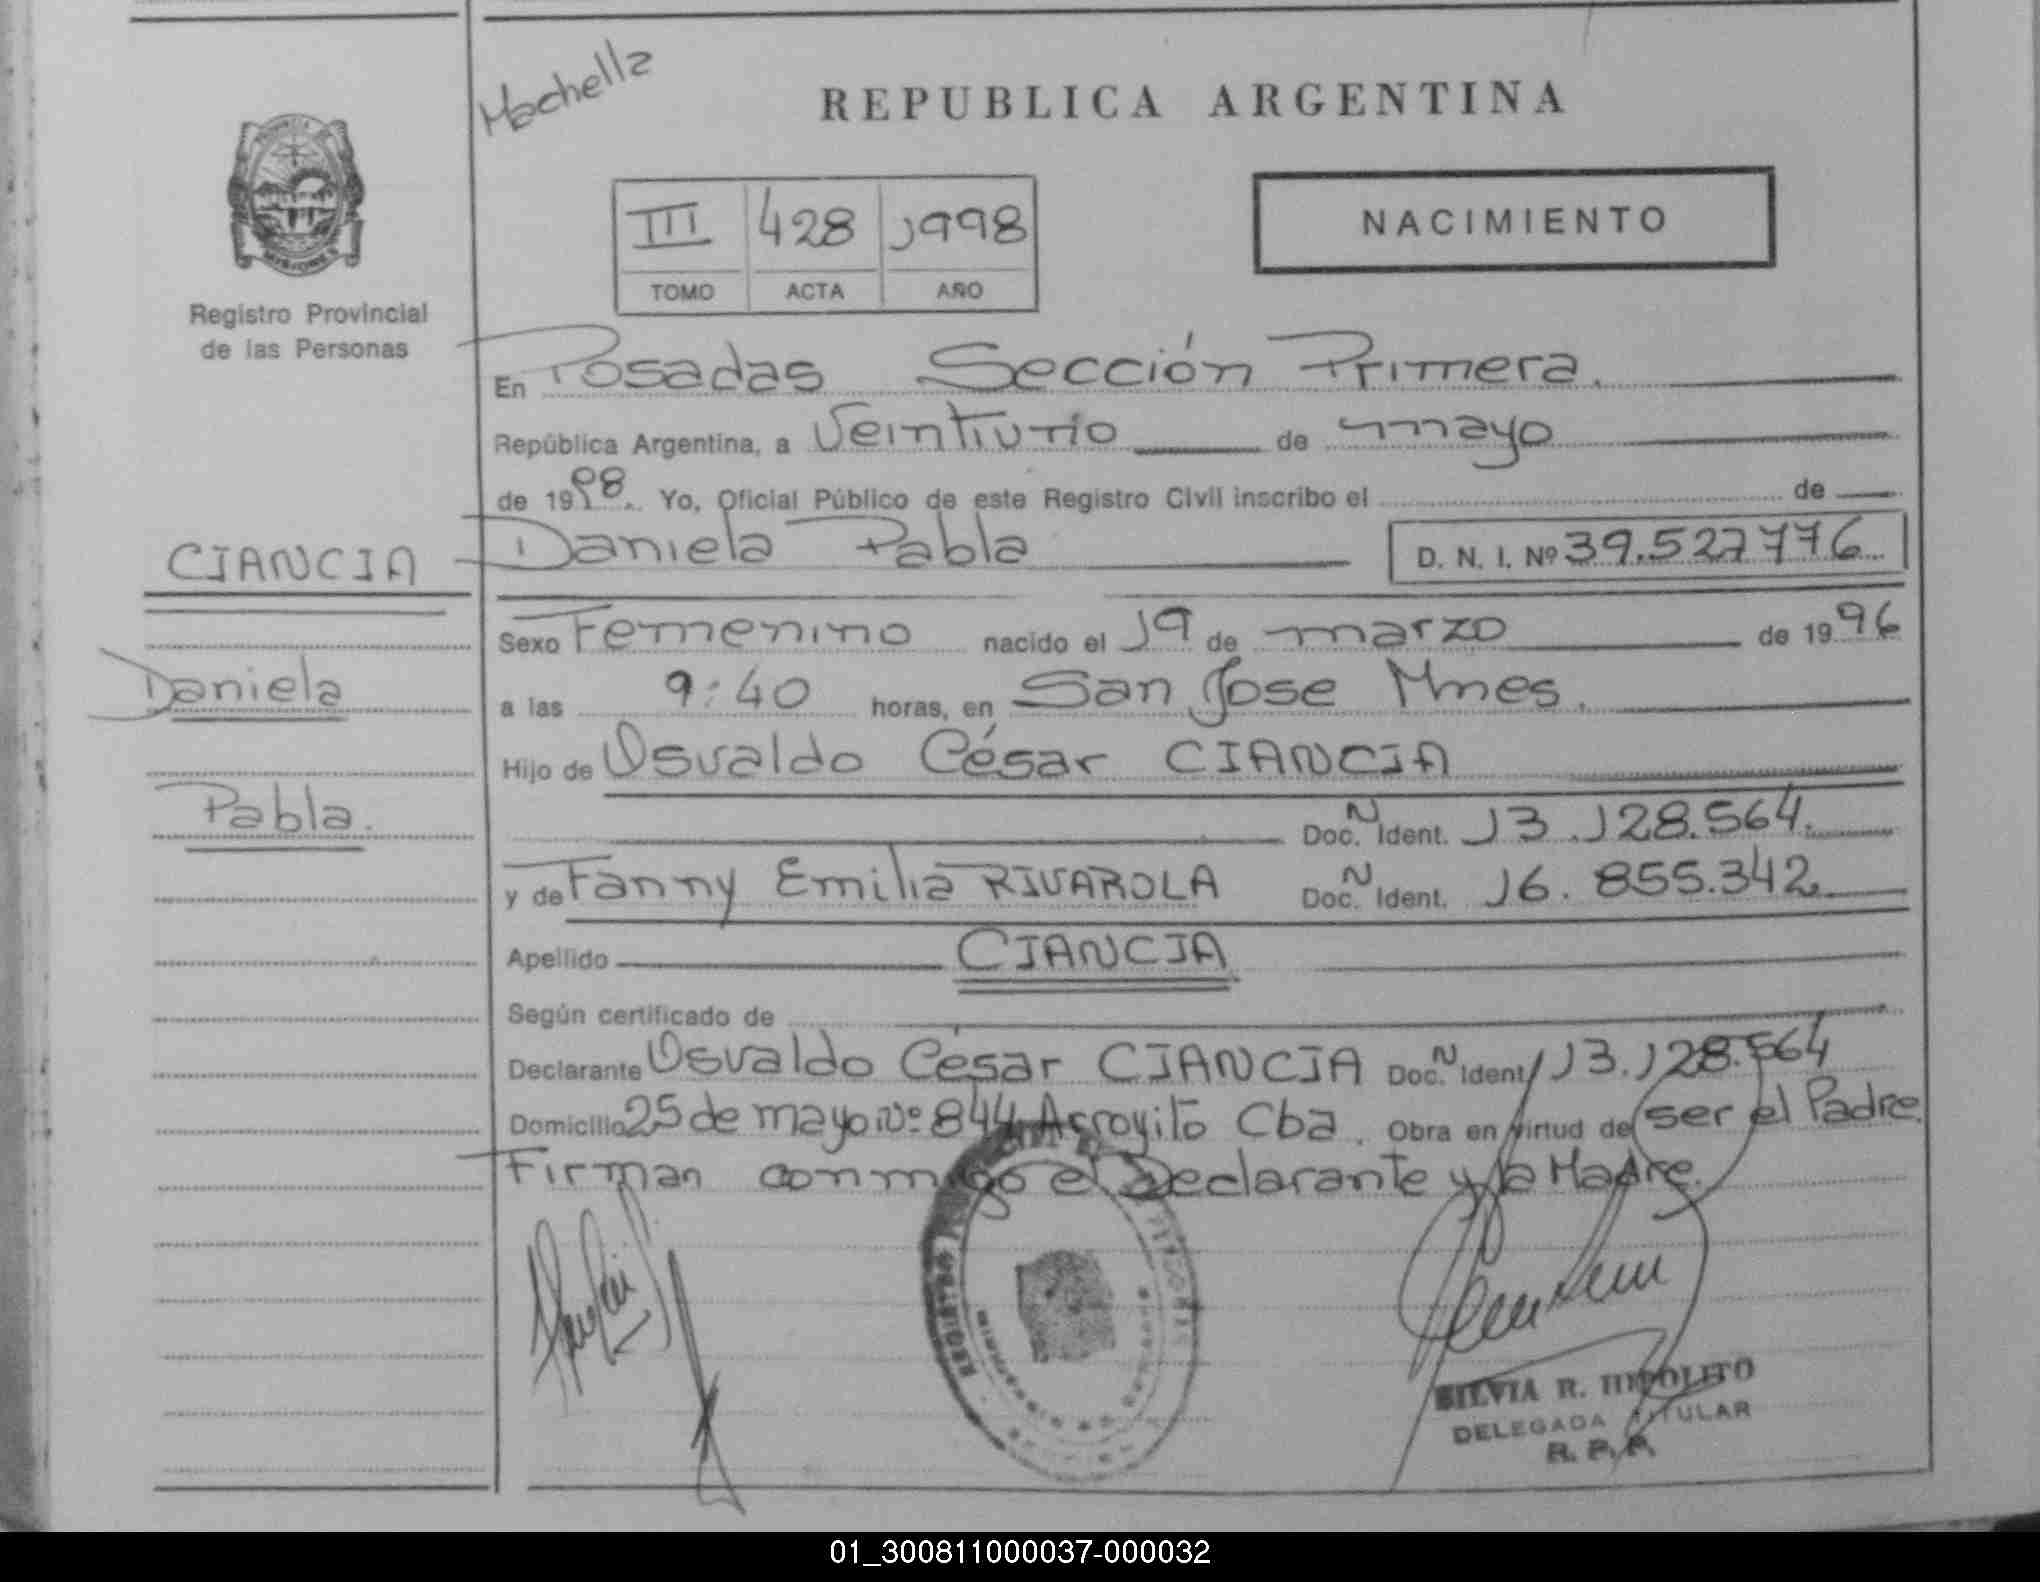 Machella
REPUBLICA ARGENTINA
III 428 1998
TOMO ACTA AÑO
NACIMIENTO
MISIONES
Registro Provincial
de las Personas
En Posadas Sección Primera.
República Argentina, a Veintiuno de mayo
de 1998. Yo, Oficial Público de este Registro Civil inscribo el de
CIANCIA
Daniela Pabla D. N. I. Nº 39.527776
Sexo Femenino nacido el 19 de marzo de 1996
Daniela
a las 9:40 horas, en San Jose Mnes.
Hijo de Osvaldo César CIANCIA
Pabla.
Doc. N Ident. 13.128.564.
y de Fanny Emilia RIVAROLA Doc. N Ident. 16.855.342
Apellido CIANCIA
Según certificado de
Declarante Osvaldo César CIANCIA Doc. N Ident. 13.128.564
Domicilio 25 de mayo Nº 844 Arroyito Cba. Obra en virtud de ser el Padre.
Firman conmigo el Declarante y la Madre.
SILVIA R. HIPOLITO
DELEGADA TITULAR
R. P. P.
01_300811000037-000032